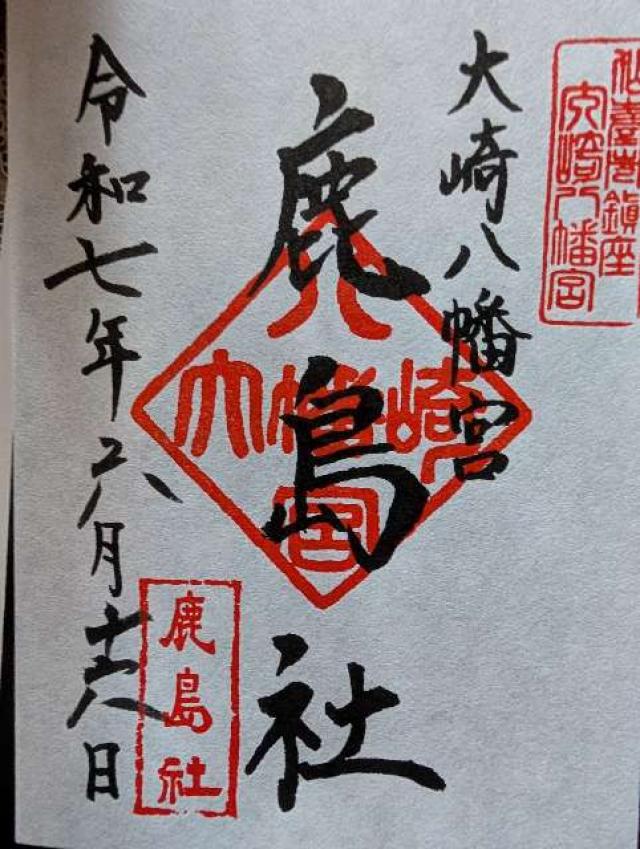 仙臺 鎮座
大崎八幡宮
大崎八幡宮
鹿島社
大崎八幡宮
令和七年六月十六日
鹿島社